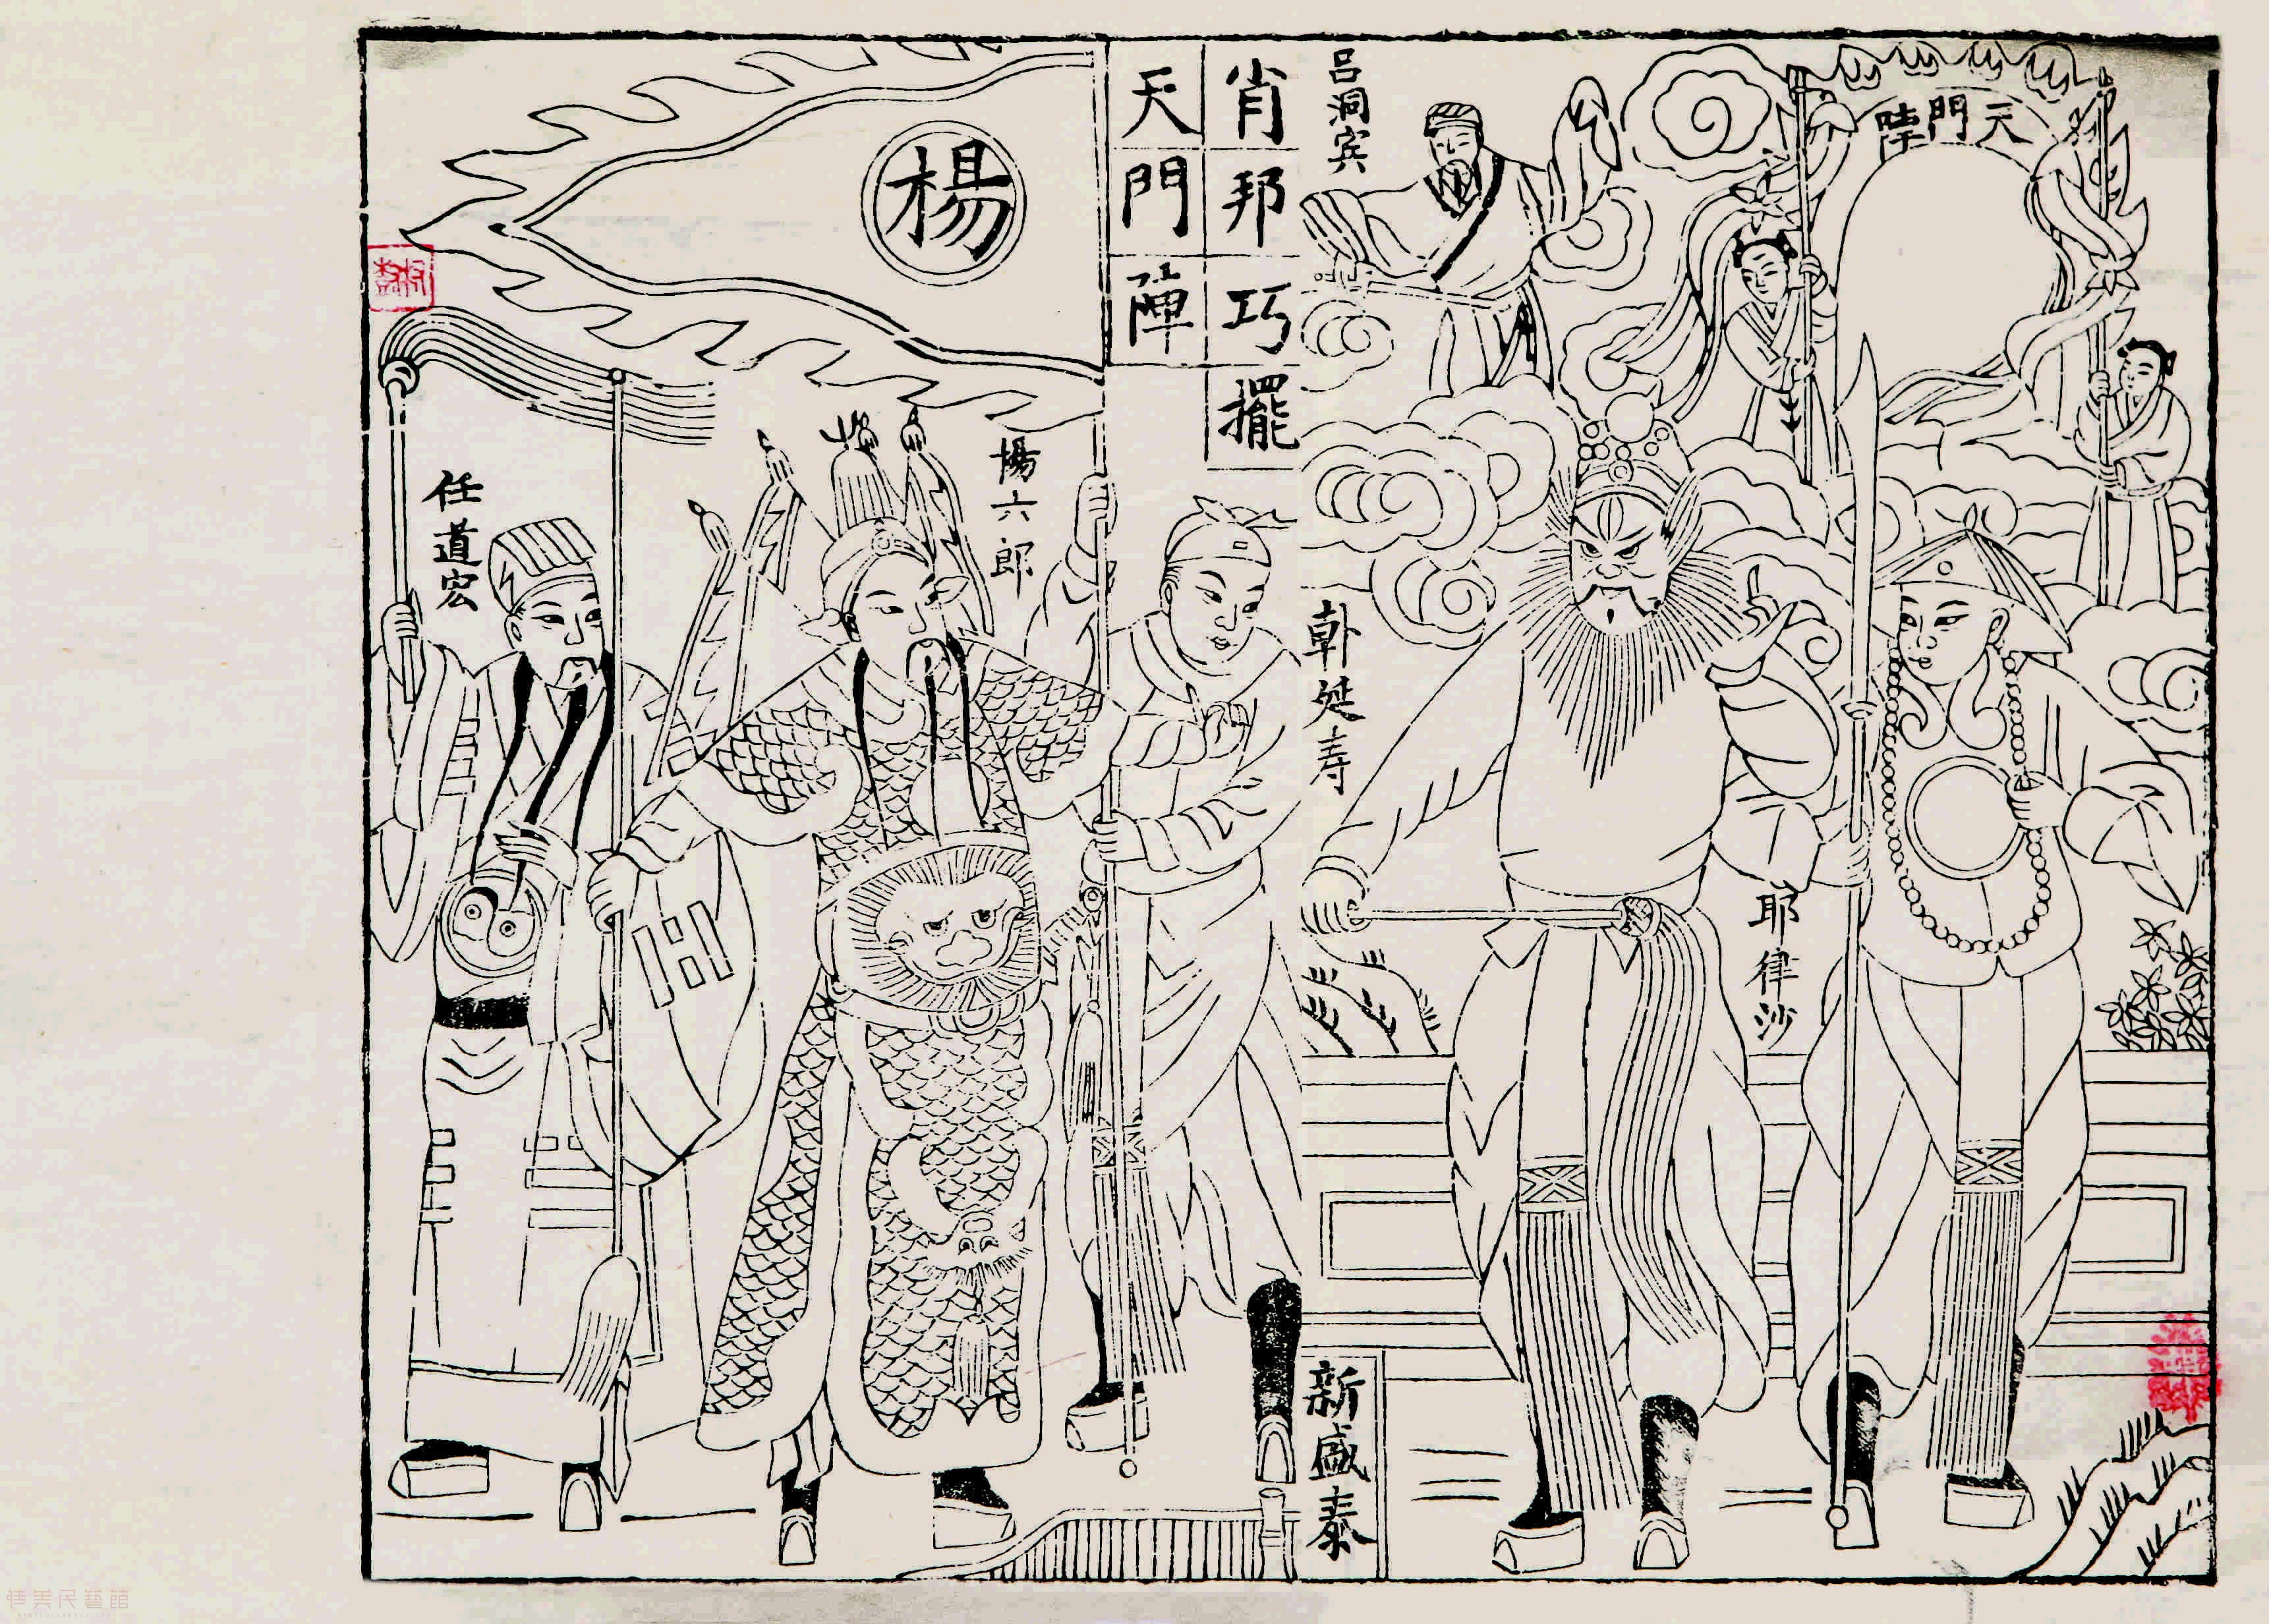 肖邦巧擺
天門陣
楊
吕洞宾
天門陣
任道宏
楊六郎
韩延寿
耶律沙
新盛泰
佳美民藝館